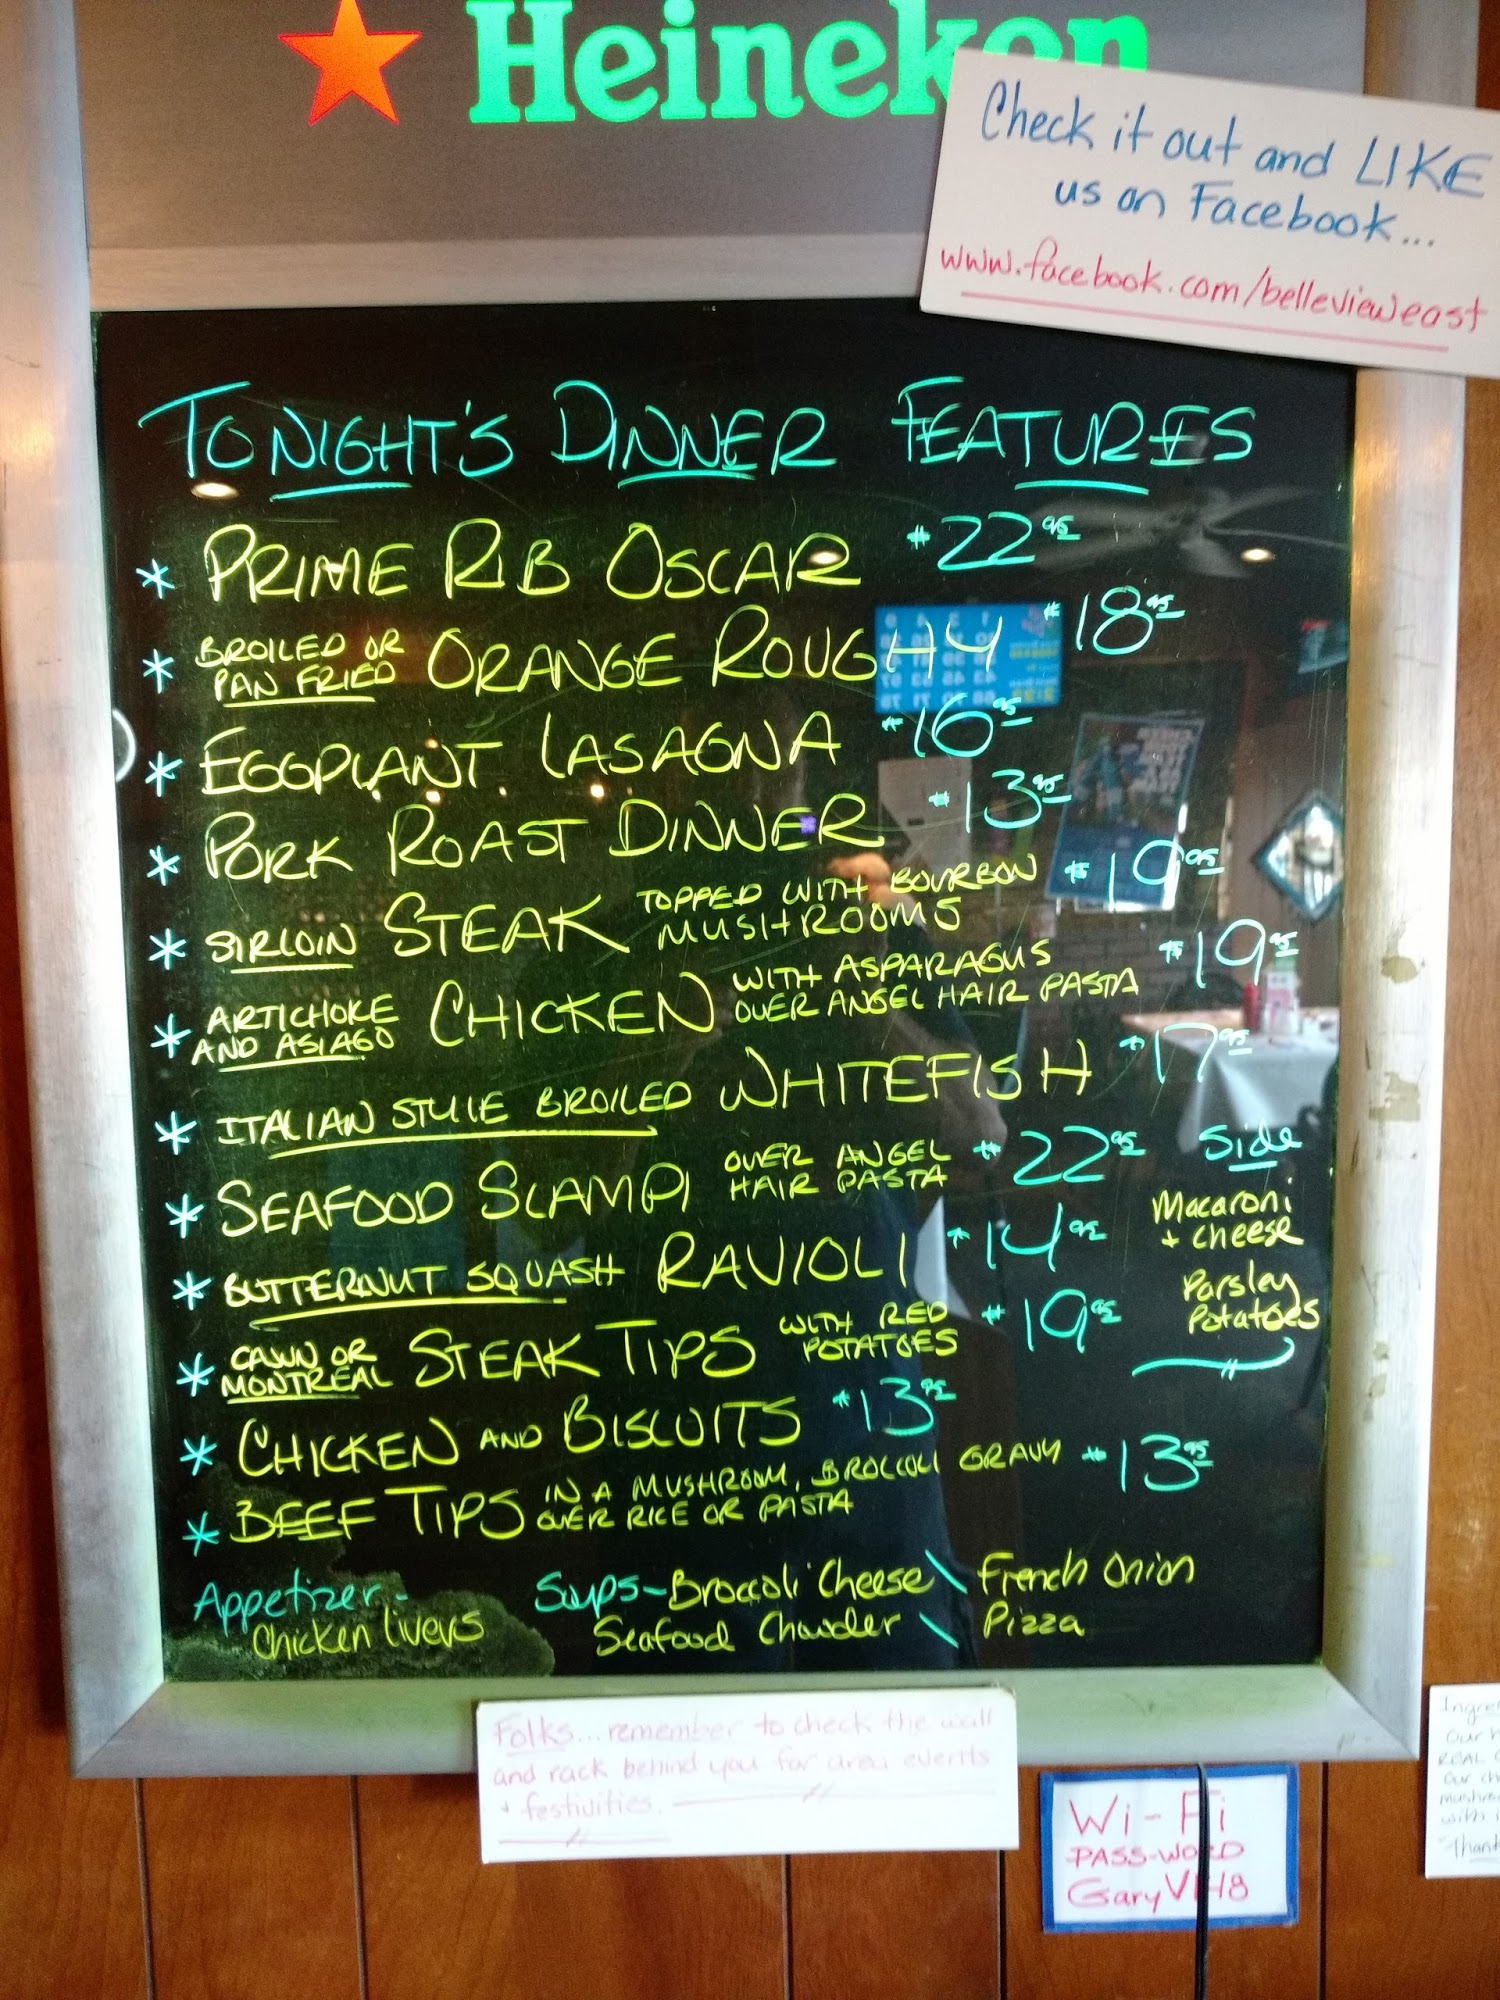 Heineken
Check it out and LIKE
us on Facebook...
www.facebook.com/bellevieweast
TONIGHT'S DINNER FEATURES
* PRIME RIB OSCAR $22.95
* BROILED OR PAN FRIED ORANGE ROUGHY $18.95
* EGGPLANT LASAGNA $16.95
* PORK ROAST DINNER $13.95
* SIRLOIN STEAK TOPPED WITH BOURBON MUSHROOMS $19.95
* ARTICHOKE AND ASIAGO CHICKEN WITH ASPARAGUS OVER ANGEL HAIR PASTA $19.95
* ITALIAN STYLE BROILED WHITEFISH $17.95
* SEAFOOD SCAMPI OVER ANGEL HAIR PASTA $22.95
* BUTTERNUT SQUASH RAVIOLI $14.95
* CAJUN OR MONTREAL STEAK TIPS WITH RED POTATOES $19.95
* CHICKEN AND BISCUITS $13.95
* BEEF TIPS IN A MUSHROOM, BROCCOLI GRAVY OVER RICE OR PASTA $13.95
Side
Macaroni
+ cheese
Parsley
Potatoes
Appetizer -
Chicken livers
Soups - Broccoli Cheese \ French Onion
Seafood Chowder \ Pizza
Folks... remember to check the wall
and rack behind you for area events
+ festivities.
Wi-Fi
PASS-WORD
GaryVH8
Our
REAL
Our
with